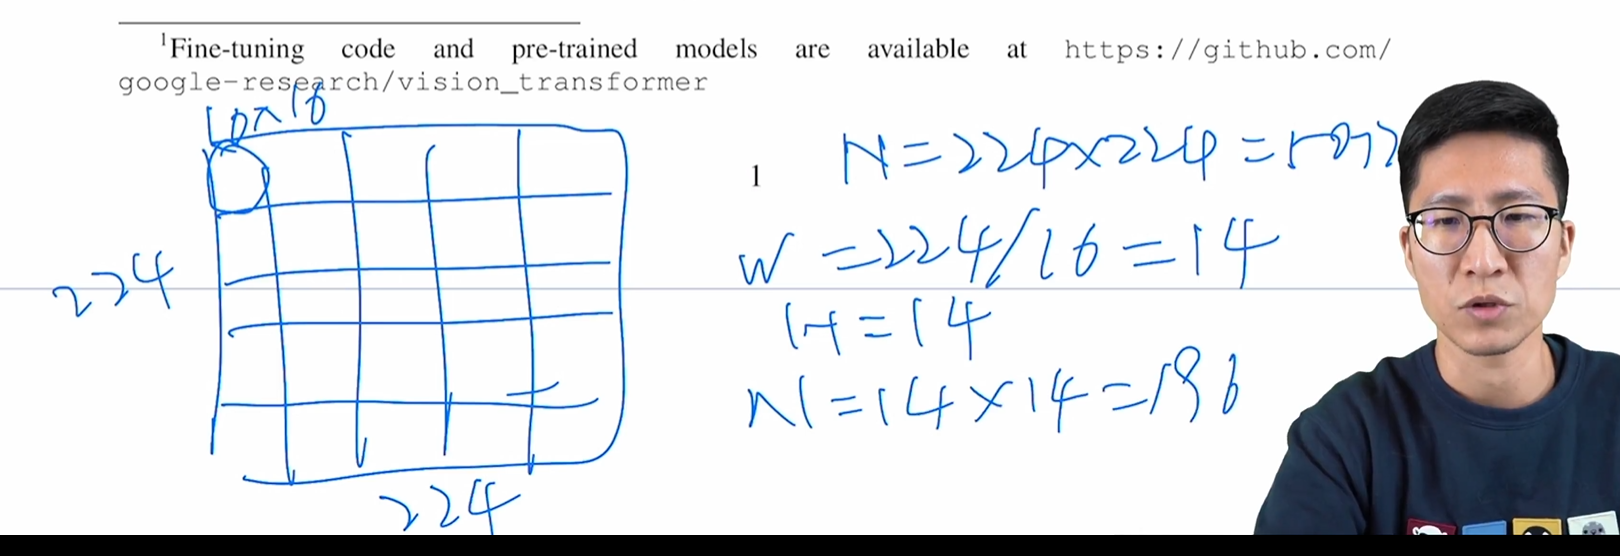 ¹Fine-tuning code and pre-trained models are available at https://github.com/
google-research/vision_transformer
16×16
1
N=224×224=5
W=224/16=14
H=14
N=14×14=196
224
224